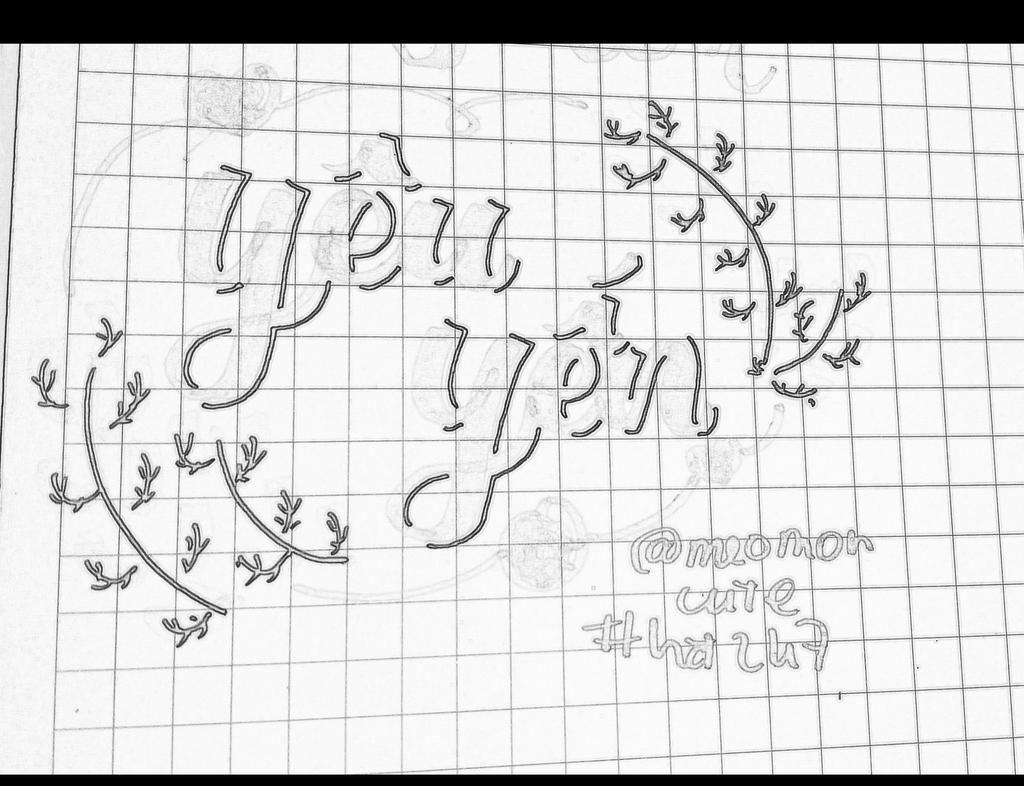 yêu
yến
@meomon
cute